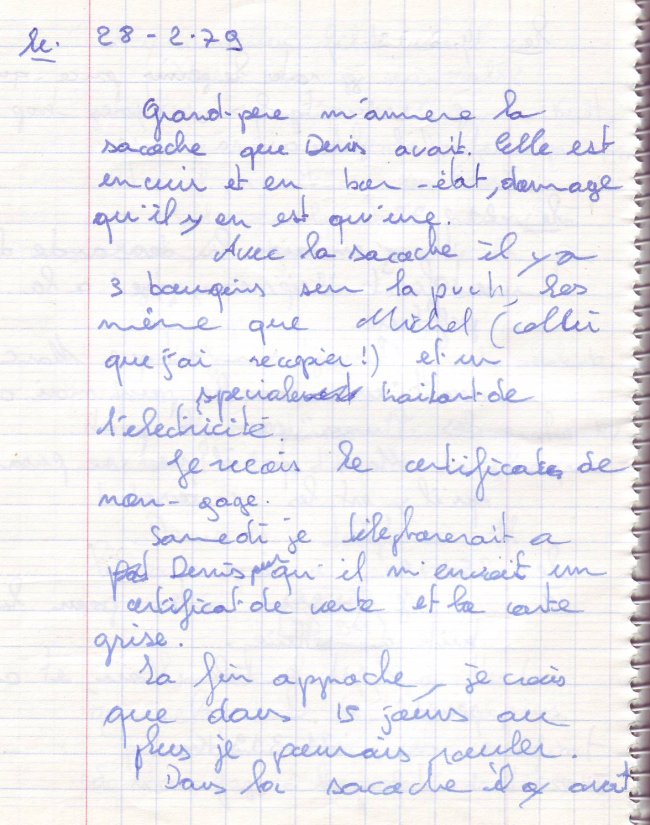 le. 28-2-79
Grand-père m'annere la
sacoche que Denis avait. Elle est
en cuir et en bon-état, domage
qu'il y en est qu'une.
Avec la sacoche il y a
3 bouquins sur la puch, les
même que Michel (collui
que j'ai recopier!) et un
speciale traitant de
l'électricité.
Je recois le certificat de
non-gage.
Samedi je téléphonerait a
Denis pour qu'il m'envoit un
certificat de vente et la carte
grise.
La fin approche, je crois
que dans 15 jours au
plus je pourrais rouler.
Dans la sacoche il y avait